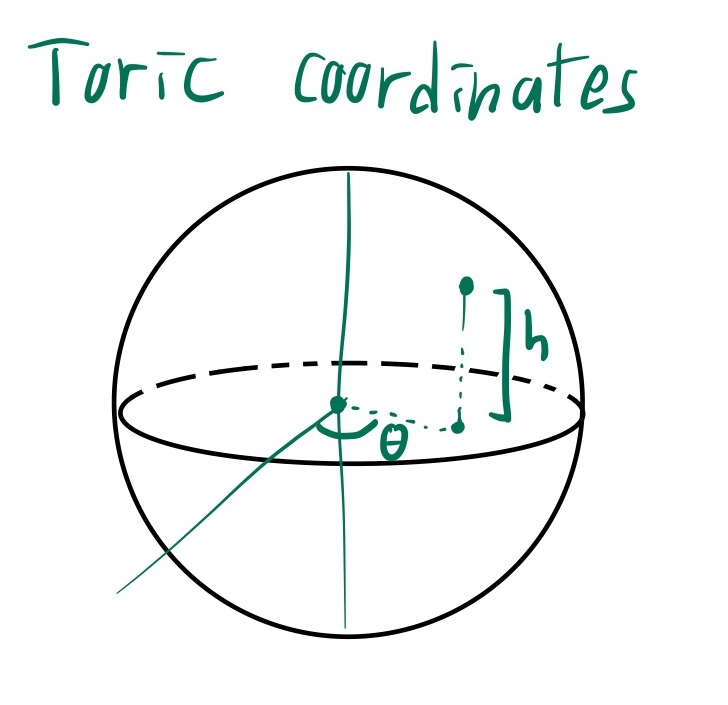 Toric coordinates
h
θ